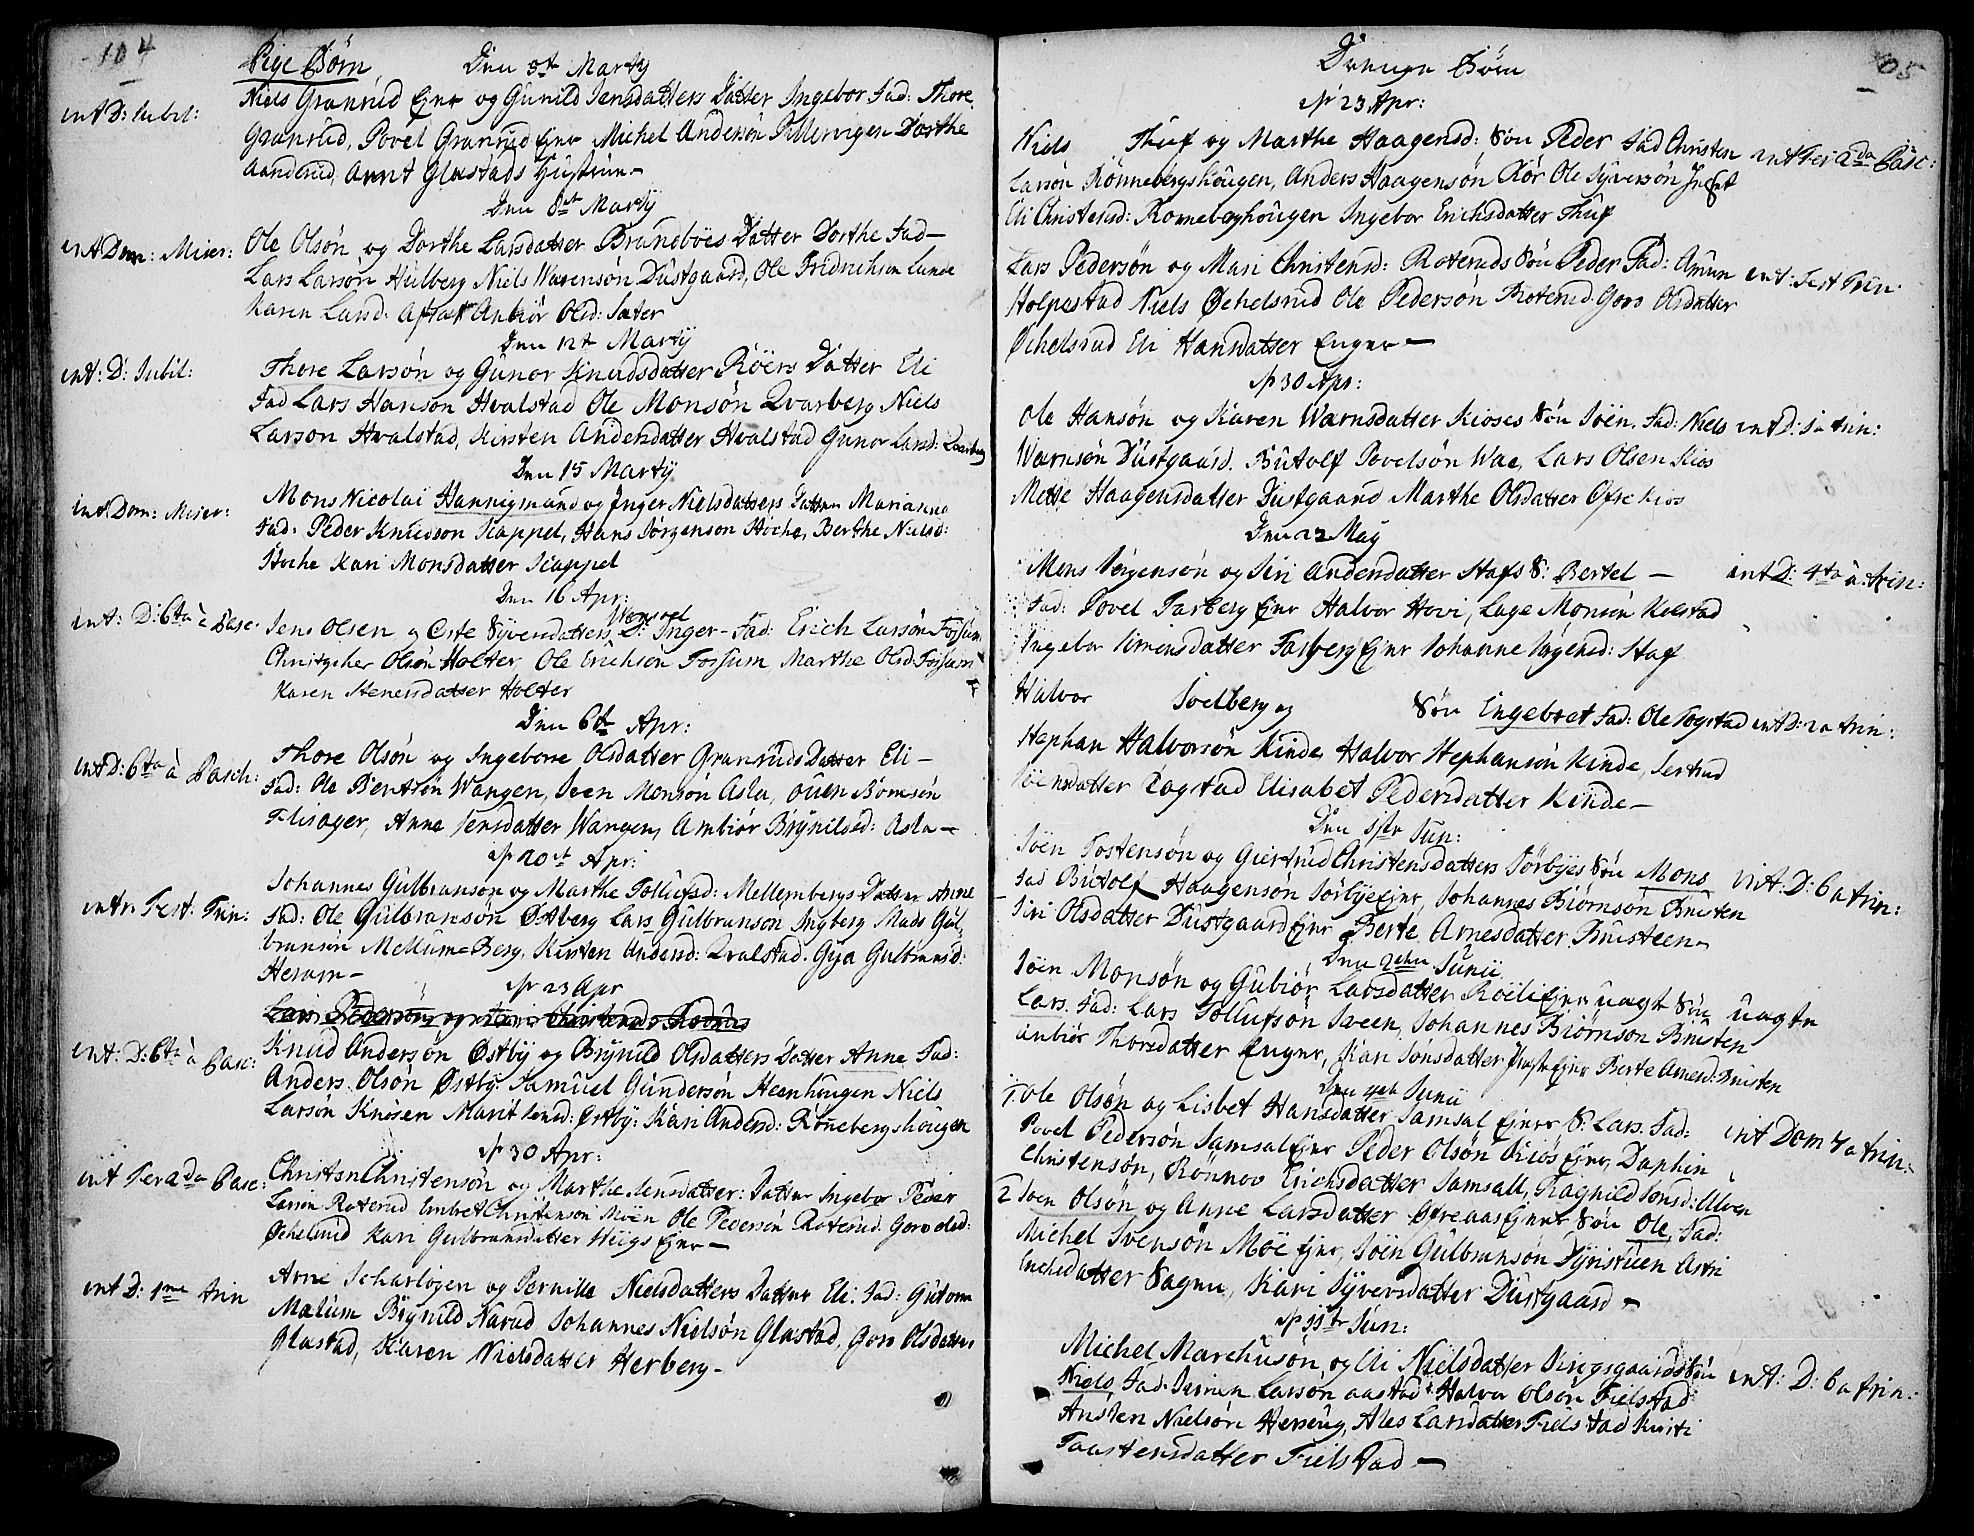 104
Pige Börn
Den 5t Martÿ
int D: Iubil:
Niels Granrud Ejer og Gunild Jensdatters Datter Ingebor Fad: Thore
Granrud, Povel Granrud Ejer Michel Andersön Dorthe
Aanderud, Arnt Glæstads Hustrue
Den 8t Martÿ
int Dom: Miser:
Ole Olsön og Dorthe Larsdatter Brandböes Datter Dorthe Fad
Lars Larsön Hulberg Niels Warensön Dustgaard, Ole Fridrichsen Lunde
Karen Larsd: Anbiör Olsd: Sæter
Den 12t Martÿ
int: D: Iubil:
Thore Larsön og Gunor Knudsdatter Röiers Datter Eli
Fad Lars Hanson Hvalstad Ole Monsön Qvarberg Niels
Larson Hvalstad, Kirsten Andersdatter Hvalstad Gunor Larsd:
Den 15 Martÿ
int Dom: Miser:
Mons Nicolai Hannigmand og Inger Nielsdatters Datter Marianna
Fad: Peder Knudson Kappel, Hans Jörgenson Hoche, Berthe Nielsd:
Hoche Kari Monsdatter Kappel
Den 16 Apr:
int: D: 6ta à Pasc:
Jens Olsen og Oste Syversdatters D: Inger - Fad: Erich Larsön Fossum
Christopher Olsön Holter Ole Erichsön Fossum Marthe Olsd: Fossum
Karen Stenersdatter Holter
Den 6te Apr:
int D: 6ta à Pasch:
Thore Olsön og Ingeborre Olsdatter Granruds Datter Eli
Fad: Ole Bentsön Wangen, Sven Monsön Asla, Ouen Bömsön
Flisager, Anne Jensdatter Wangen, Ambiör Brÿnildsd: Asla
d 20t Apr:
intr. Fest: Trin:
Johannes Gulbranson og Marthe Tollufsd: Mellembergs Datter Anne
Fad: Ole Gulbransön Östberg Lars Gulbranson Ingberg Mads Gul,
bransön Mellum Berg, Kirsten Andersd: Qvalstad. Gya Gulbransd:
Herum
d 23 Apr
Lars Pedersön og Mari Christensd: Roterud
int: D: 6ta à Pasc:
Knud Andersön Östbÿ og Brÿnild Olsdatters Datter Anne Fad:
Anders Olsön Östbÿ Samuel Gundersön Heenhougen Niels
Larsön Knösen Marit Jensd: Östbÿ: Kari Andersd: Rönnebergshougen
d 30 Apr:
int Fer 2da Pasc:
Christen Christensön og Marthe Jensdatter: Datter Ingebor Peder
Larsön Roterud Embret Christenson Möen Ole Pedersön Roterud Goro Olsd:
Öchelsrud Kari Gulbransdatter Wiigs Ejer
int D: 1me trin
Arne Scharlogen og Pernille Nielsdatters Datter Eli: Fad: Gutorm
Mælum Brÿnild Narud Johannes Nielsön Glæstad, Goro Olsdatter
Glæstad, Karen Nielsdatter Herberg
05
Drenge Börn
d 23 Apr:
Niels Thuf og Marthe Haagensd: Sön Peder Fad Christen int Fer 2da Pasc:
Larsön Rönnebergshougen, Anders Haagensön Rör Ole Syversön
Eli Christensd: Ronneberghougen Ingebor Erichsdatter Thuf
Lars Pedersön og Mari Christensd: Roteruds Sön Peder Fad: Amun int: Fest Trin.
Holpestad Niels Öchelsrud Ole Pedersön Roterud Goro Olsdatter
Öchelsrud Eli Hansdatter Enger
d 30 Apr:
Ole Hansön og Karen Warnsdatter Kioses Sön Joen. Fad: Niels int D: 1a trin:
Warnsön Dustgaard. Butolf Povelsön Wae, Lars Olsen Kios
Mette Haagensdatter Dustgaard Marthe Olsdatter Ofre Kios
Den 22 Maÿ
Mons Jörgensön og Siri Andersdatter Stafs S: Bertel int D: 4ta à trin:
Fad: Povel Farberg Ejer Halvor Hovi, Lage Monsön Kolstad
Ingebor Simensdatter Farberg Ejer Johanne Jörgensd: Staf
Halvor Soelberg og Sön Engebret Fad: Ole Togstad int D: 2a trin:
Stephan Halvorsön Kinde Halvor Stephansön Kinde, Sertrud
Joensdatter Togstad Elisabet Pedersdatter Kinde
Den 1ste Jun:
Joen Tostensön og Giertrud Christensdatters Sörbyes Sön Mons int: D: 6a trin:
Fad Butolf Haagensön Sörbye Ejer, Johannes Biörnsön Bruisten
Siri Olsdatter Dustgaard Ejer Berte Arnesdatter Bruisteen
Den 2den Junii
Joen Monsön og Gubiör Larsdatter Roelie Ejer uægt Sön uægte
Lars. Fad: Lars Tollufson Sveen, Johannes Biörnson Bruisten
Anbiör Thorsdatter Enger, Kari Jonsdatter Ejer Berte Arnesd: Bruisten
Den 4de Junii
1. Ole Olsön og Lisbet Hansdatter Samsal Ejers S: Lars. Fad:
Povel Pedersön Samsal Ejer Peder Olsön Kiös Ejer, Daphin int Dom 7a trin.
Christensön, Rönnov Erichsdatter Samsall, Ragnild Jonsd: Ulven
2 Joen Olsön og Anne Larsdatter Öfreaas Ejers Sön Ole, Fad:
Michel Svensön Moe Ejer, Joen Gulbransön Dÿrstuen Astri
Erichsdatter Bagne, Kari Syversdatter Dustgaard
d 11te Jun:
Michel Marchusön og Eli Nielsdatter Sön int: D: 6a trin:
Niels, Fad: Simen Larsön Aastad Halvor Olsön Fielstad
Ansten Nielsön Herreng, Ales Larsdatter Fielstad Kirsti
Taastensdatter Fielstad